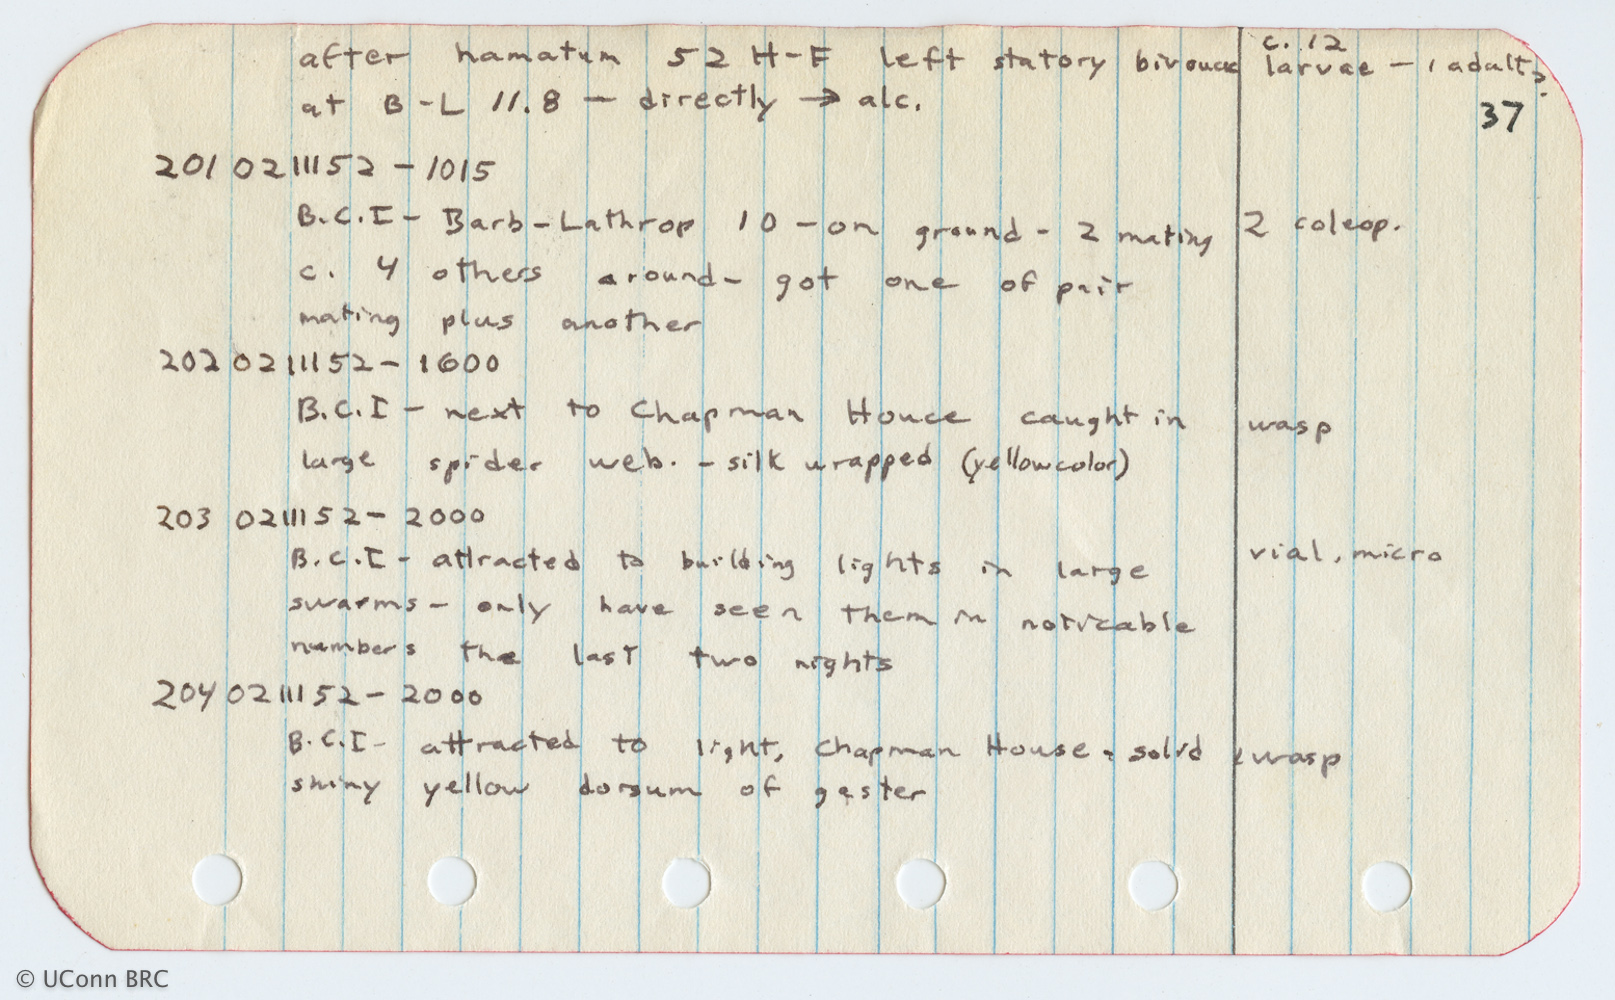 c. 12
after hamatum 52 H-E left statory bivouac larvae - 1 adult?
at B-L 11.8 - directly → alc.
37
201 021152 - 1015
B.C.I - Barb-Lathrop 10 - on ground - 2 mating 2 coleop.
c. 4 others around - got one of pair
mating plus another
202 021152 - 1600
B.C.I - next to Chapman Houce caught in wasp
large spider web. - silk wrapped (yellow color)
203 021152 - 2000
B.C.I - attracted to building lights in large vial, micro
swarms - only have seen them in noticable
numbers the last two nights
204 021152 - 2000
B.C.I - attracted to light, Chapman House - solid wasp
shiny yellow dorsum of gaster
© UConn BRC